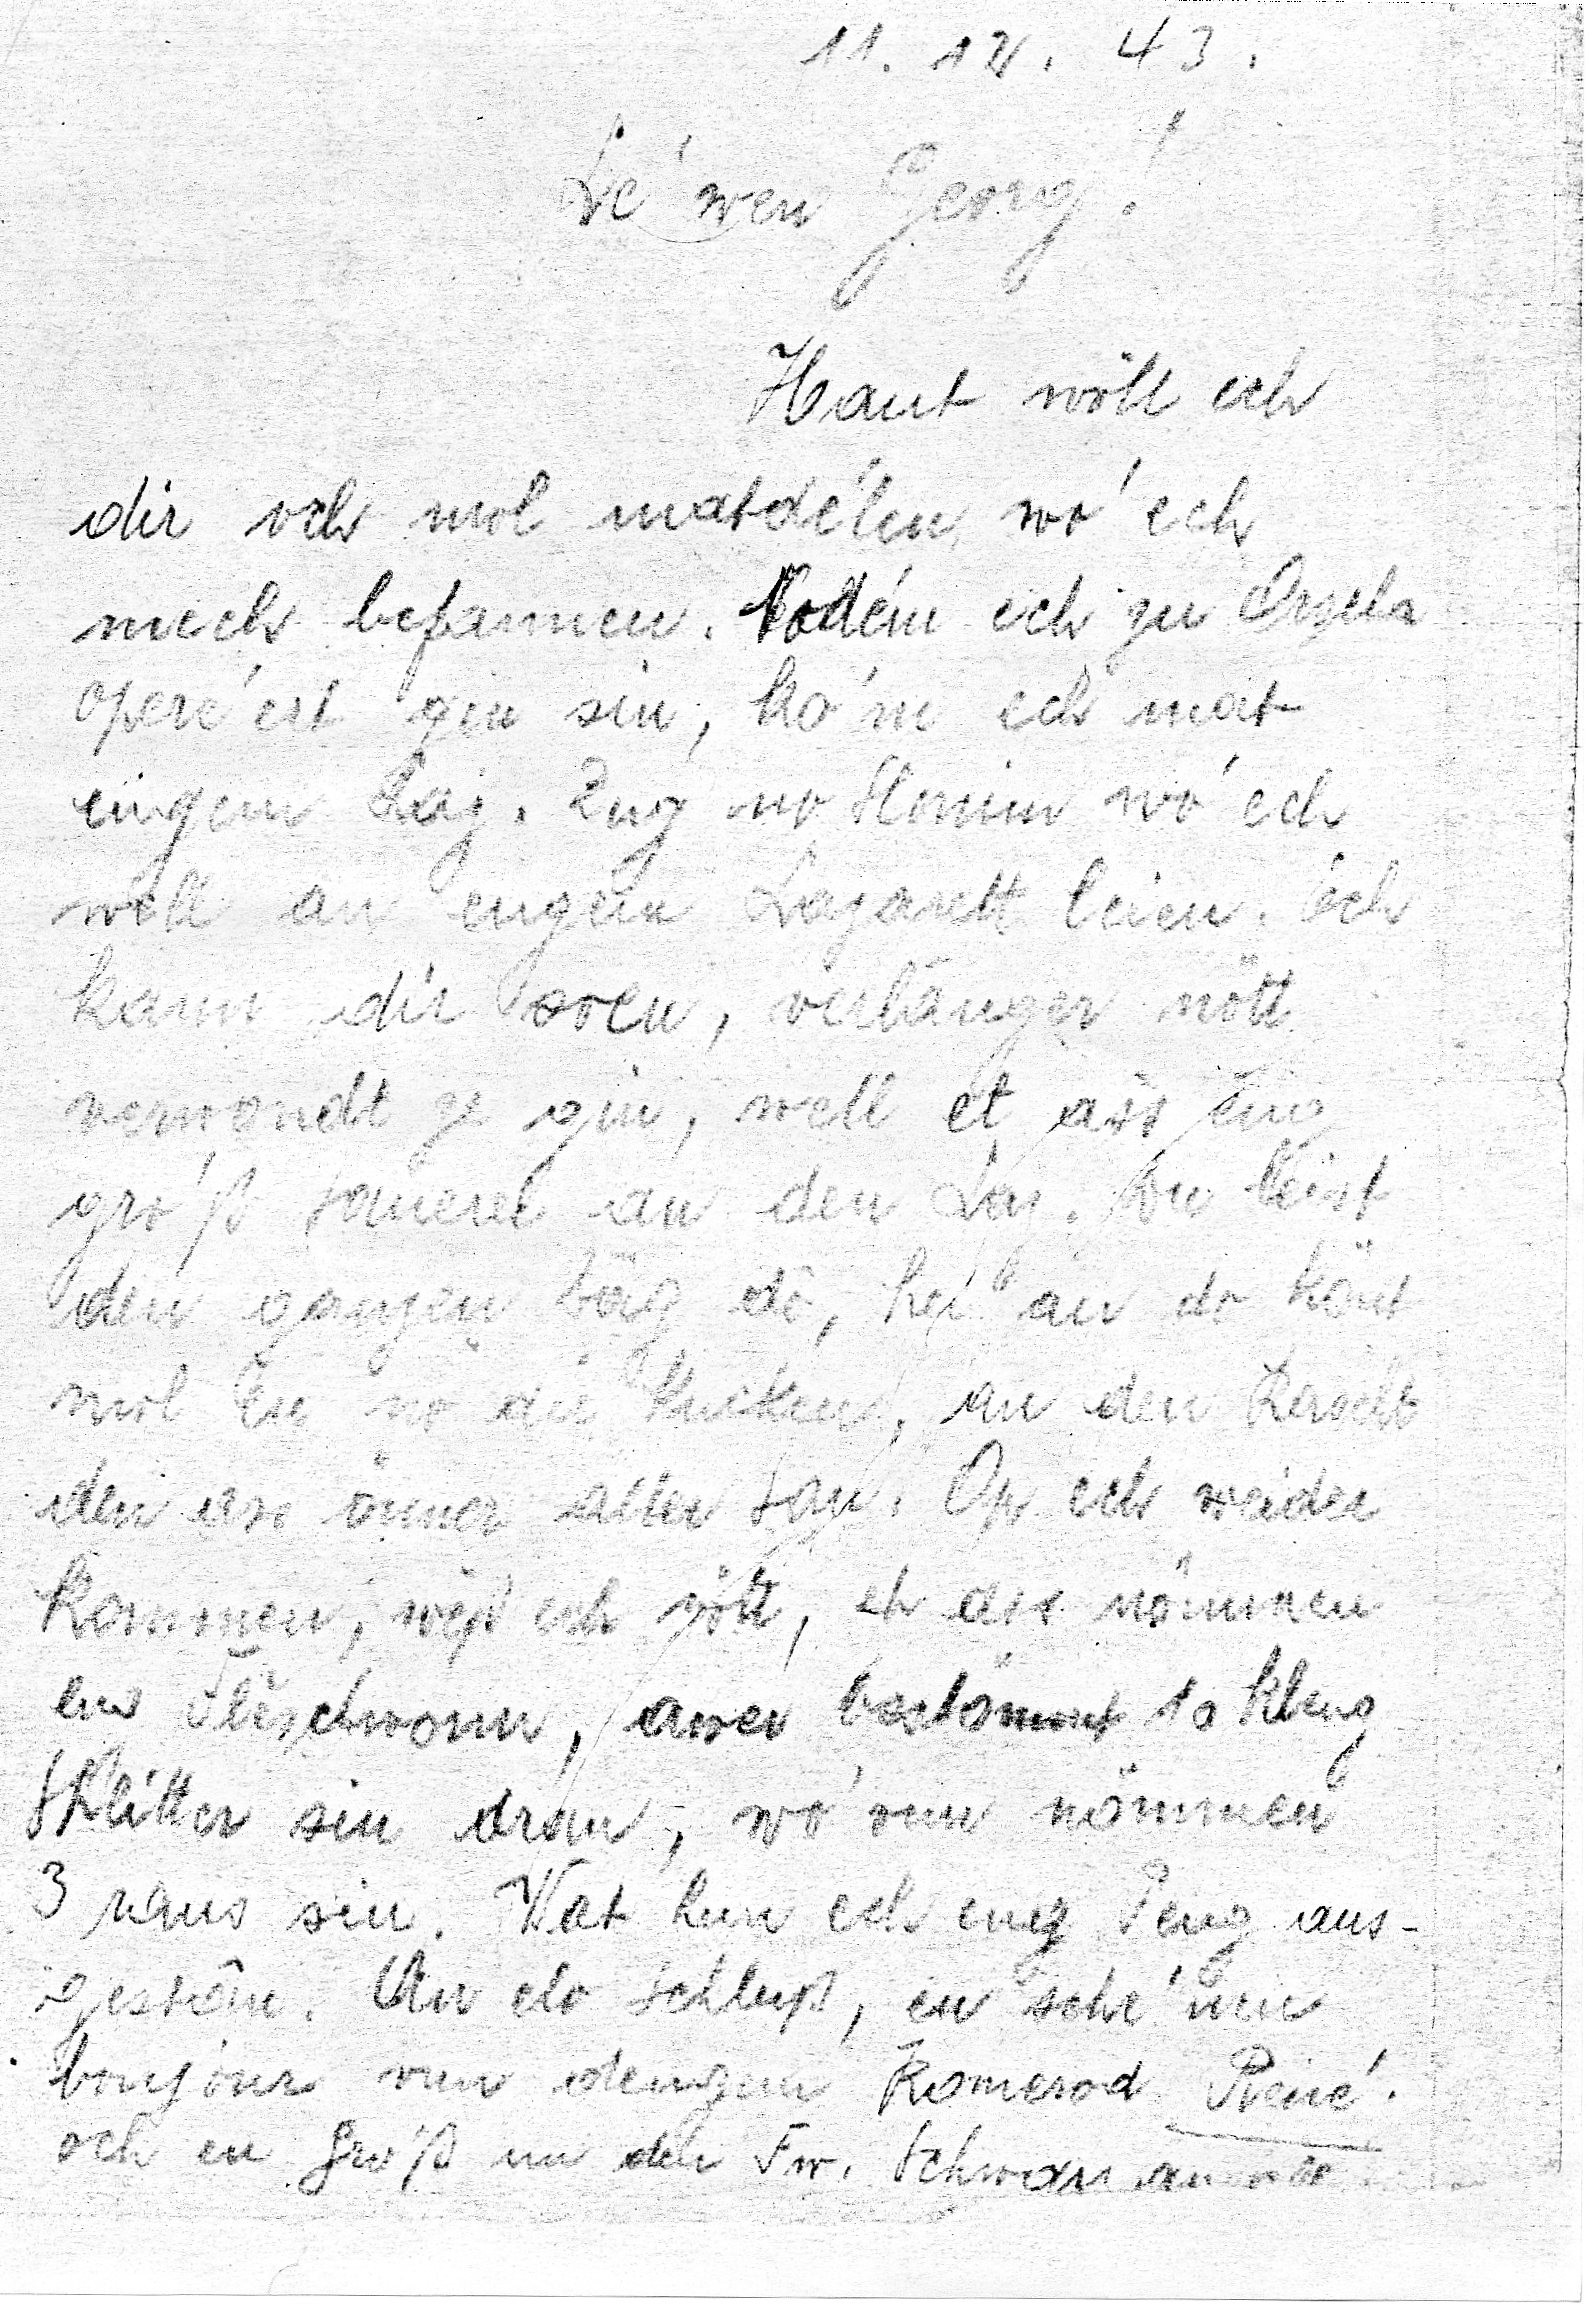 11. 12. 43.
Lé'wen Georg!
Haut wöll ech
dir och mol matdélen, wo' ech
mech befannen. Nodém ech zu Orscha
operé'ert gin sin, ko'm ech mat
engem Laz. Zug no Slonim wo' ech
well an engem Lazarett leien. Ech
kann dir soen, verlänger nött
verwondt ze gin, well et ass eng
gro'ß sauerei an den Laz. Du leist
den ganzen Dág do, hei an do könt
mol én no dir kucken, an den Krascht
den ass ömmer allen so'u. Op ech weider
kommen, wéß ech nött, et ass nömmen
eng Fléschwonn, awer bestömmt 10 kleng
Splitter sin dran, wo' vun nömmen
3 raus sin. Wat hun ech eng Peng aus-
gestán. An elo schluß, en sché'nen
bonjour vun dengem Komerod René.
och en Gro'ß un den Fw. Schwan